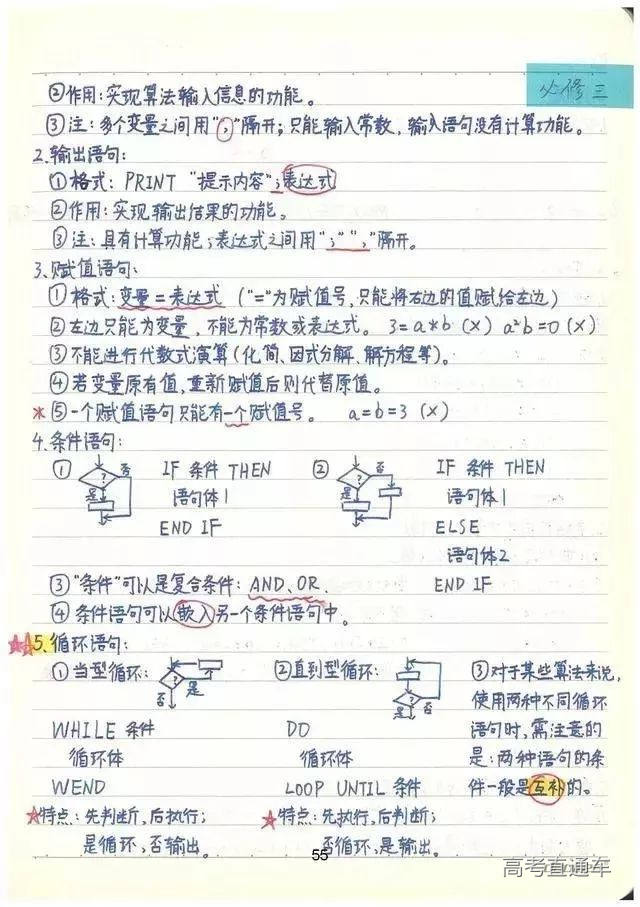 必修三
②作用:实现算法输入信息的功能。
③注:多个变量之间用“,”隔开;只能输入常数,输入语句没有计算功能。
2.输出语句:
①格式: PRINT “提示内容”;表达式
②作用:实现输出结果的功能。
③注:具有计算功能;表达式之间用“;”“,”隔开。
3.赋值语句:
①格式:变量=表达式 (“=”为赋值号,只能将右边的值赋给左边)
②左边只能为变量,不能为常数或表达式。 3=a*b (×) a²b=0 (×)
③不能进行代数式演算(化简、因式分解、解方程等)。
④若变量原有值,重新赋值后则代替原值。
*⑤一个赋值语句只能有一个赋值号。 a=b=3 (×)
4.条件语句:
① ? 否 是 IF 条件 THEN
语句体1
END IF
② ? 否 是 IF 条件 THEN
语句体1
ELSE
语句体2
END IF
③“条件”可以是复合条件: AND、OR.
④条件语句可以嵌入另一个条件语句中。
☆☆5.循环语句:
①当型循环: ? 是 否
WHILE 条件
循环体
WEND
☆特点:先判断,后执行;
是循环,否输出。
②直到型循环: ? 否 是
DO
循环体
LOOP UNTIL 条件
☆特点:先执行,后判断;
否循环,是输出。
③对于某些算法来说,
使用两种不同循环
语句时,需注意的
是:两种语句的条
件一般是互补的。
55
高考直通车